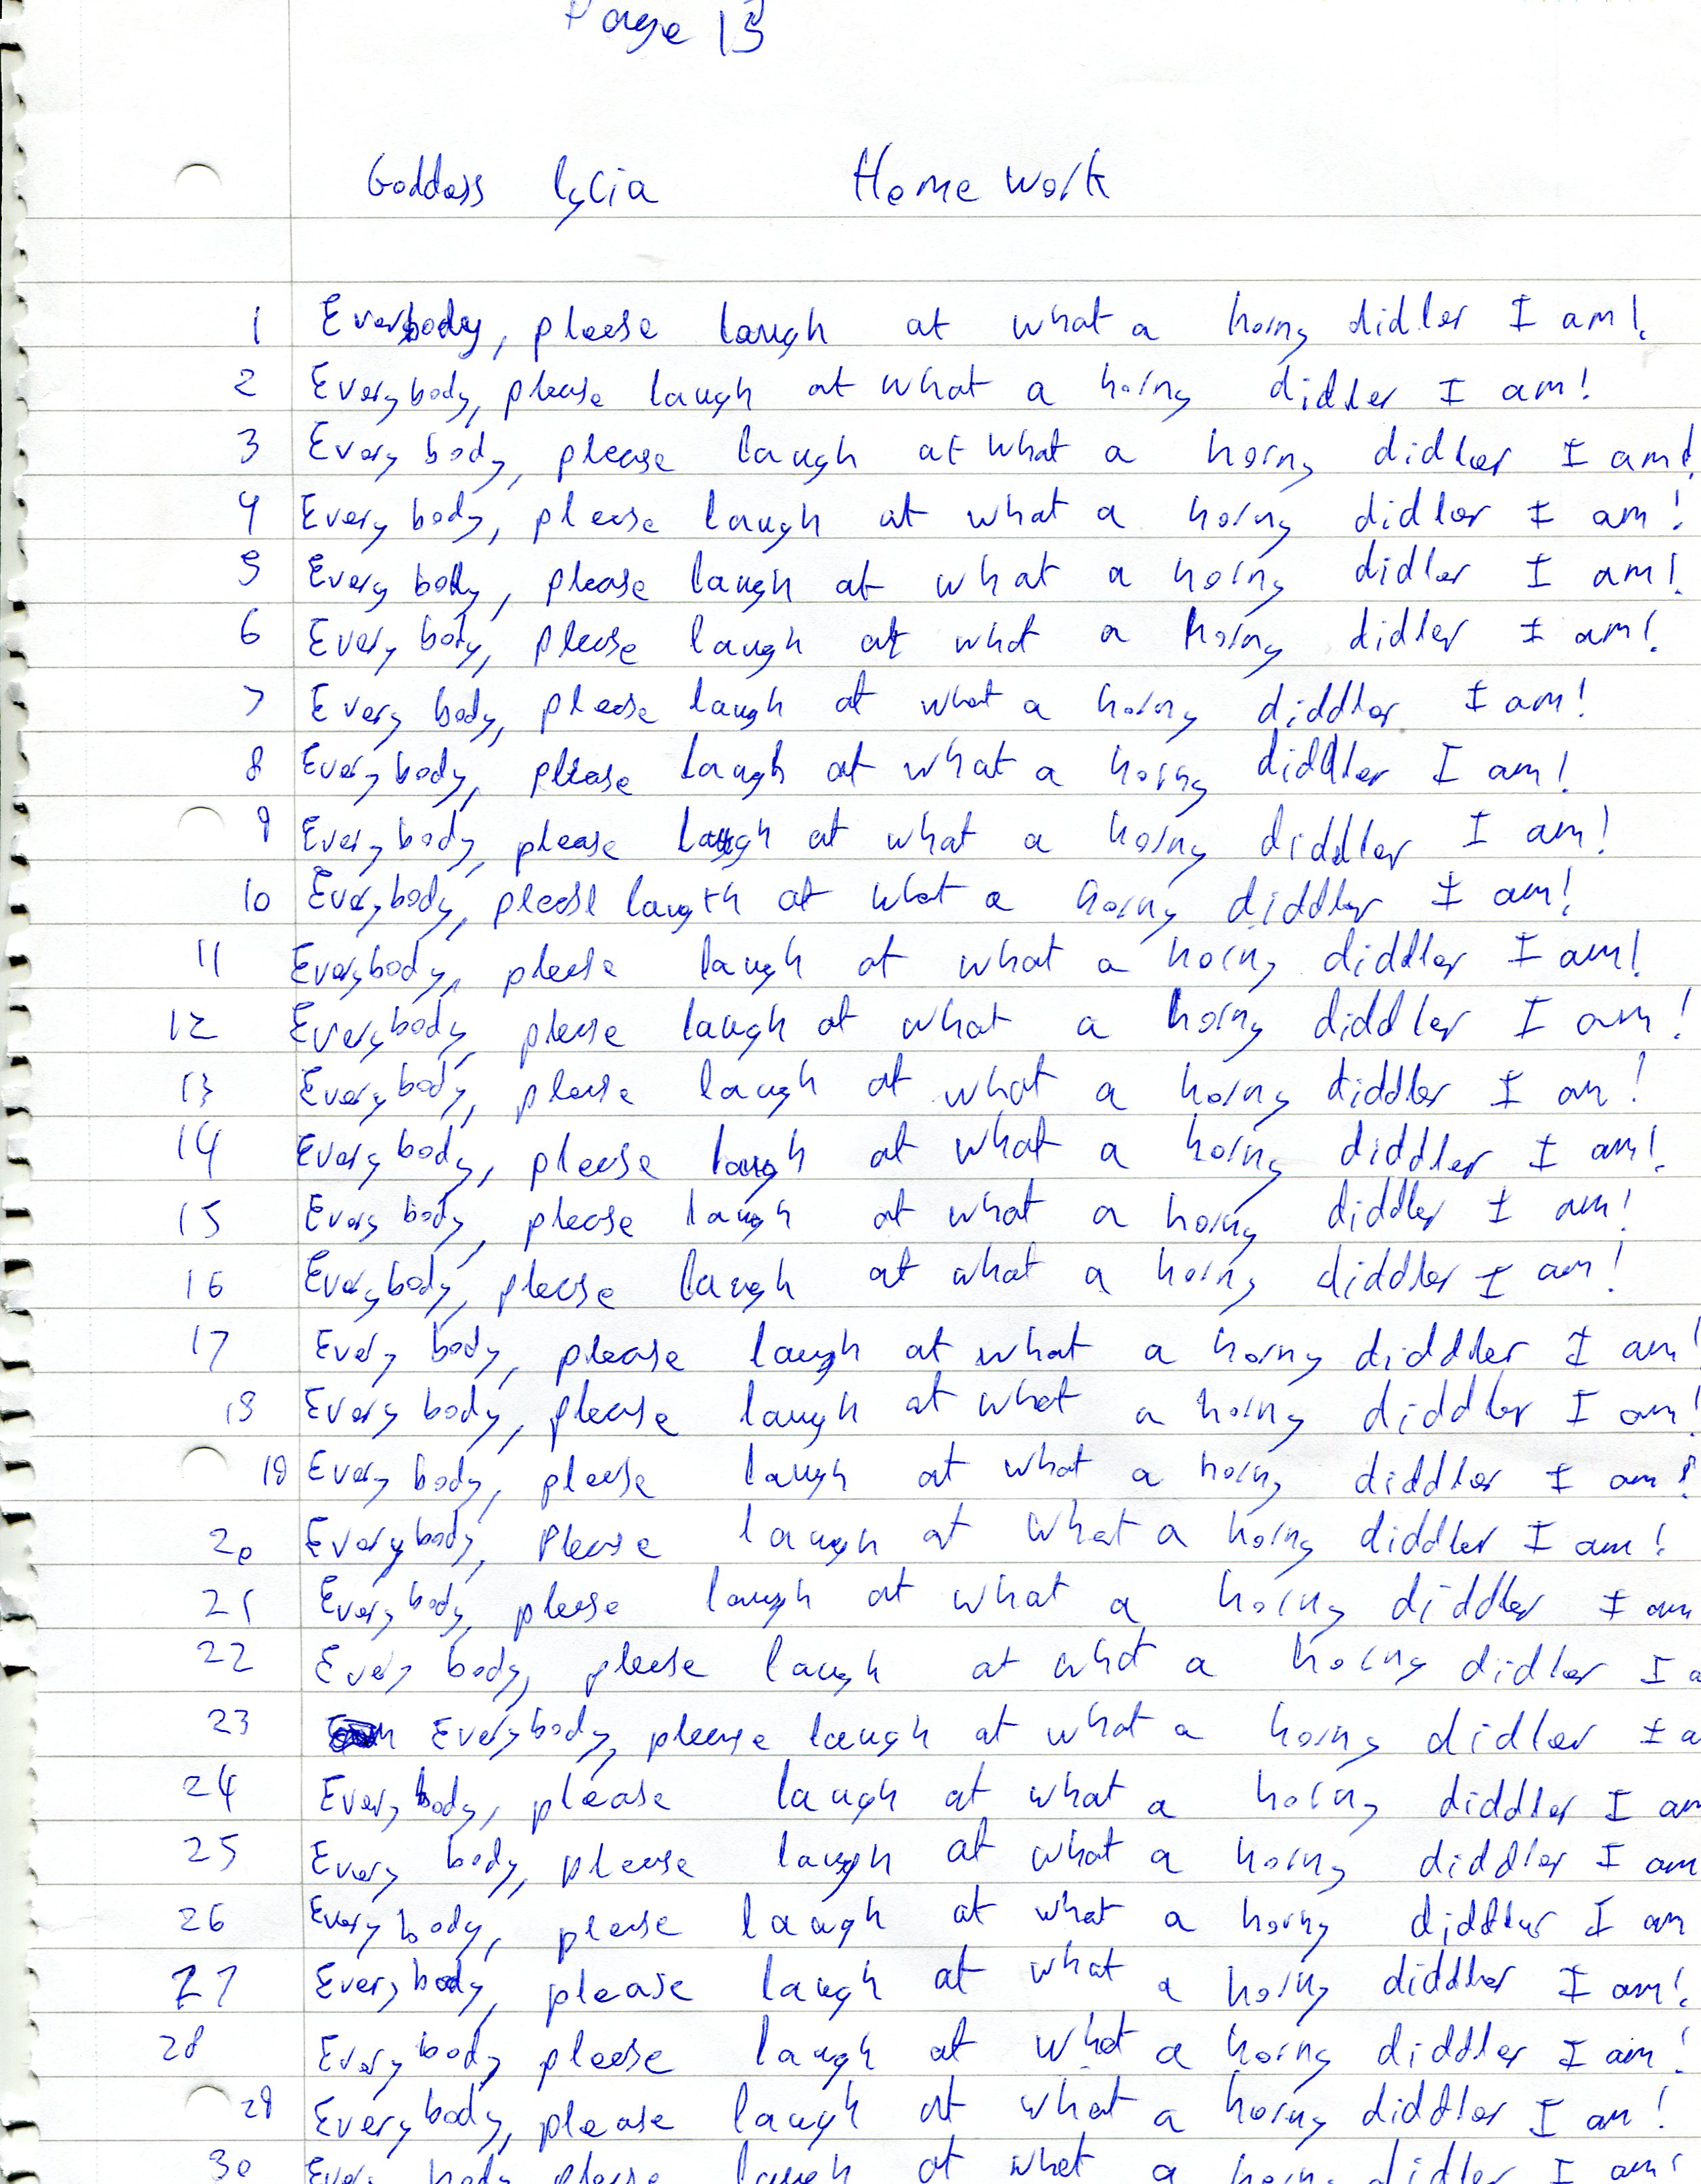 Page 13
Goddess lycia Home Work
1 Everybody, please laugh at what a horny didler I am!
2 Everybody, please laugh at what a horny didler I am!
3 Every body, please laugh at what a horny didler I am!
4 Every body, please laugh at what a horny didler I am!
5 Every body, please laugh at what a horny didler I am!
6 Every body, please laugh at what a horny didler I am!
7 Every body, please laugh at what a horny diddler I am!
8 Every body, please laugh at what a horny diddler I am!
9 Every body, please laugh at what a horny diddler I am!
10 Everybody, please laugth at what a horny diddler I am!
11 Everybody, please laugh at what a horny diddler I am!
12 Everybody, please laugh at what a horny diddler I am!
13 Everybody, please laugh at what a horny diddler I am!
14 Every body, please laugh at what a horny diddler I am!
15 Every body, please laugh at what a horny diddler I am!
16 Everybody, please laugh at what a horny diddler I am!
17 Every body, please laugh at what a horny diddler I am!
18 Every body, please laugh at what a horny diddler I am!
19 Every body, please laugh at what a horny diddler I am!
20 Everybody, Please laugh at what a horny diddler I am!
21 Everybody, please laugh at what a horny diddler I am
22 Every body, please laugh at what a horny didler I a
23 Everybody, please laugh at what a horny didler I a
24 Every body, please laugh at what a horny diddler I am
25 Every body, please laugh at what a horny diddler I am
26 Every body, please laugh at what a horny diddler I am
27 Every body, please laugh at what a horny diddler I am!
28 Every body, please laugh at what a horny diddler I am!
29 Everybody, please laugh at what a horny diddler I am!
30 Every body please laugh at what a horny diddler I am!